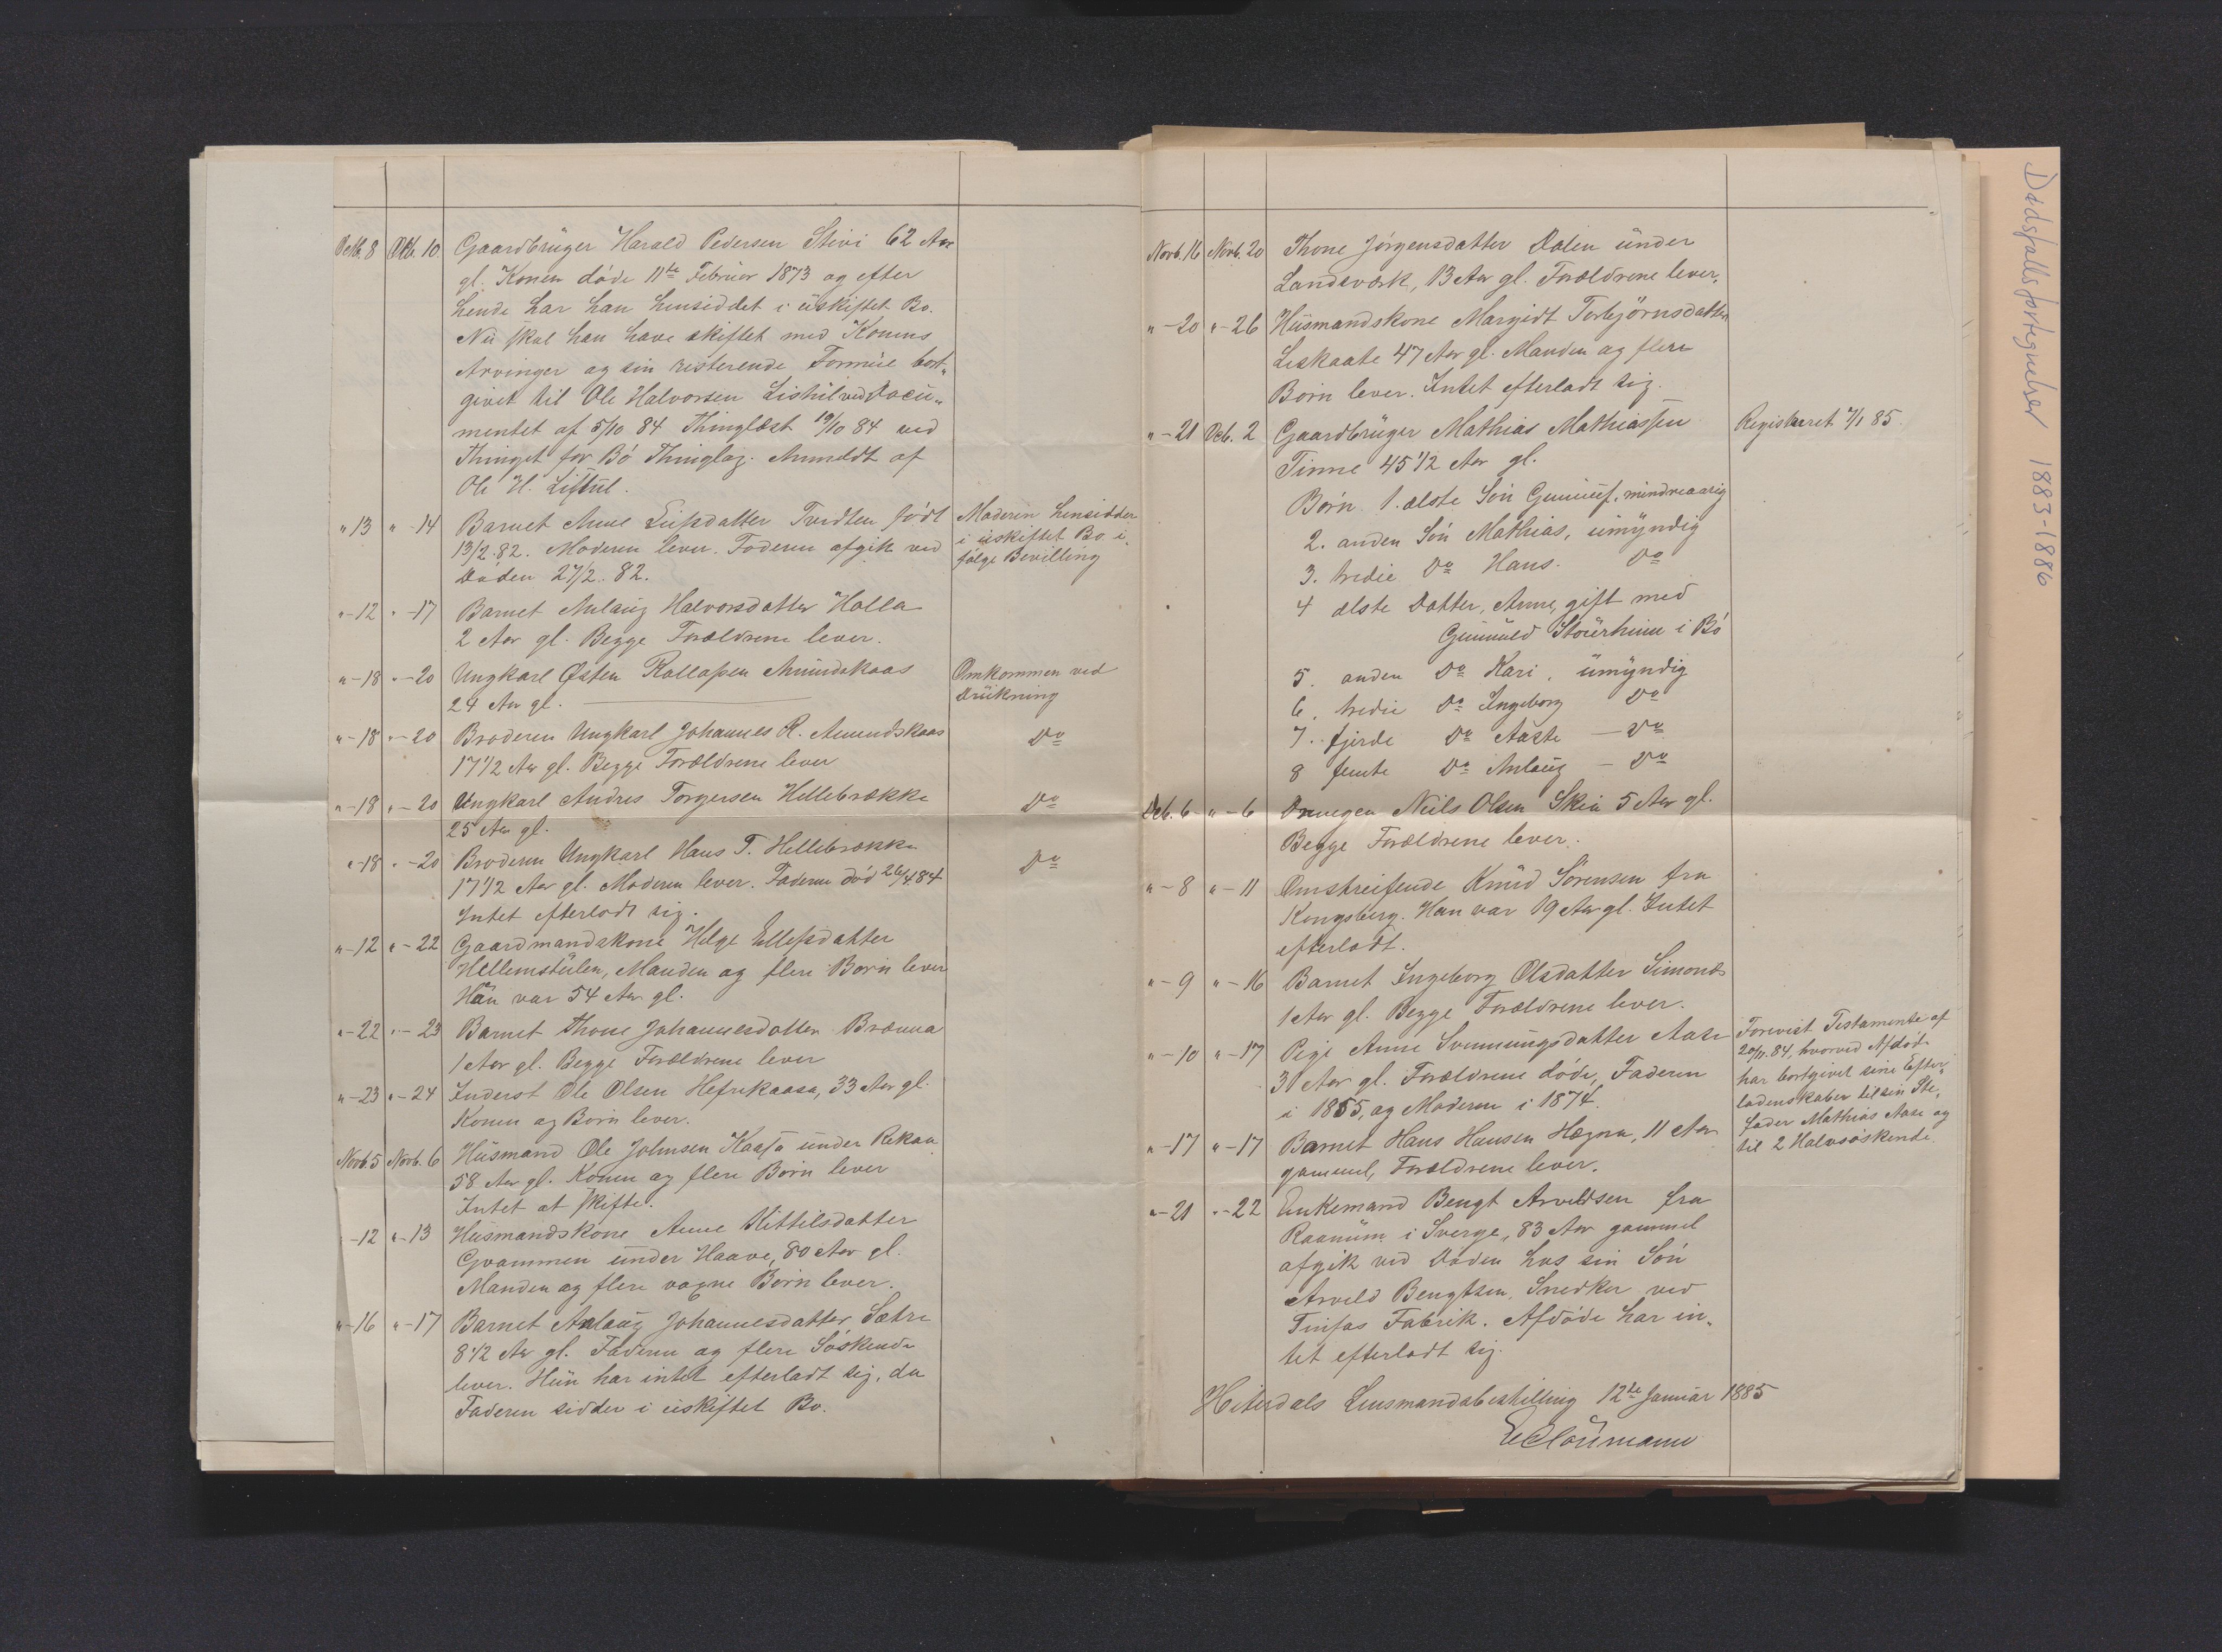 Octb. 8 Octb. 10. Gaardbruger Harald Pedersen Stivi 62 Aar
gl. Konen døde 11te Februar 1873 og efter
hende har han hensiddet i uskiftet Bo.
Nu skal han have skiftet med Konens
Arvinger og sin resterende Formue bort„
givet til Ole Halvorsen Listul ved Docu„
mentet af 5/10 84 Thinglæst 10/10 84 ved
Thinget for Bø Thinglag. Anmeldt af
Ole H. Listul.
" 13 " - 14 Barnet Anne Leifsdatter Tvedten født Moderen hensidder
13/2.82. Moderen lever. Faderen afgik ved i uskiftet Bo i„
Døden 27/2. 82. følge Bevilling
" - 12 " - 17 Barnet Anlaug Halvorsdatter Holla
2 Aar gl. Begge Forældrene lever.
" - 18 " - 20 Ungkarl Østen Rollefsen Amundskaas Omkommen ved
24 Aar gl. Drukning
" - 18 " - 20 Broderen Ungkarl Johannes R. Amundskaas Do
17 1/2 Aar gl. Begge Forældrene lever
" - 18 " - 20 Ungkarl Andres Torgersen Hellebrække Do
25 Aar gl.
" - 18 " - 20 Broderen Ungkarl Hans T. Hellebrække Do
17 1/2 Aar gl. Moderen lever. Faderen død 26/4.84
Intet efterladt sig.
" - 12 " - 22 Gaardmandskone Helge Ellefsdatter
Hellemstulen, Manden og flere Børn lever
Hun var 54 Aar gl.
" - 22 " - 23 Barnet Thone Johannesdatter Brænna
1 Aar gl. Begge Forældrene lever
" - 23 " - 24 Inderst Ole Olsen Hefrekaasa, 33 Aar gl.
Konen og Børn lever.
Novb. 5 Novb. 6 Husmand Ole Johnsen Kaasa under Rekaa
58 Aar gl. Konen og flere Børn lever
Intet at skifte.
" - 12 " - 13 Husmandskone Anne Kittilsdatter
Gvammen under Haave, 80 Aar gl.
Manden og flere voxne Børn lever.
" - 16 " - 17 Barnet Anlaug Johannesdatter Sætre
8 1/2 Aar gl. Faderen og flere Søskende
lever. Hun har intet efterladt sig, da
Faderen sidder i uskiftet Bo.
Novb. 16 Novb. 20 Thone Jørgensdatter Dalen under
Landsværk, 13 Aar gl. Forældrene lever.
" - 20 " - 26 Husmandskone Margidt Torbjørnsdatter
Leskaate 47 Aar gl. Manden og flere
Børn lever. Intet efterladt sig.
" - 21 Dcb. 2 Gaardbruger Mathias Mathiassen Registreret 7/1 85.
Tinne 45 1/2 Aar gl.
Børn. 1. ælste Søn Gunnuf, mindreaarig
2. anden Søn Mathias, umyndig
3. tredie Do Hans. Do
4 ælste Datter, Anne, gift med
Gunnuld Stourheim i Bø
5. anden Do Kari, umyndig
6. tredie Do Ingeborg Do
7. fjerde Do Aaste - Do
8 femte Do Anlaug - Do
Dcb. 6 " - 6 Drengen Neils Olsen Skiu 5 Aar gl.
Begge Forældrene lever.
" - 8 " - 11 Omstreifende Knud Sørensen fra
Kongsberg. Han var 19 Aar gl. Intet
efterladt.
" - 9 " - 16 Barnet Ingeborg Olsdatter Simones
1 Aar gl. Begge Forældrene lever.
" - 10 " - 17 Pige Anne Svennungsdatter Aase Forevist Testamente af
31 Aar gl. Forældrene døde, Faderen 20/11.84, hvorved Afdøde
i 1855, og Moderen i 1874. har bortgivet sine Efter„
ladenskaber til sin Ste„
fader Mathias Aase og
" - 17 " - 17 Barnet Hans Hansen Hægna, 11 Aar til 2 Halvsøskende.
gammel, Forældrene lever.
" - 21 " - 22 Enkemand Bengt Arveldsen fra
Raanum i Sverge, 83 Aar gammel
afgik ved Døden hos sin Søn
Arveld Bengtsen, Snedker ved
Tinfos Fabrik. Afdøde har in„
tet efterladt sig.
Hiterdals Lensmandsbestilling 12te Januar 1885
Cloumann
Dødsfallsfortegnelser 1883-1886